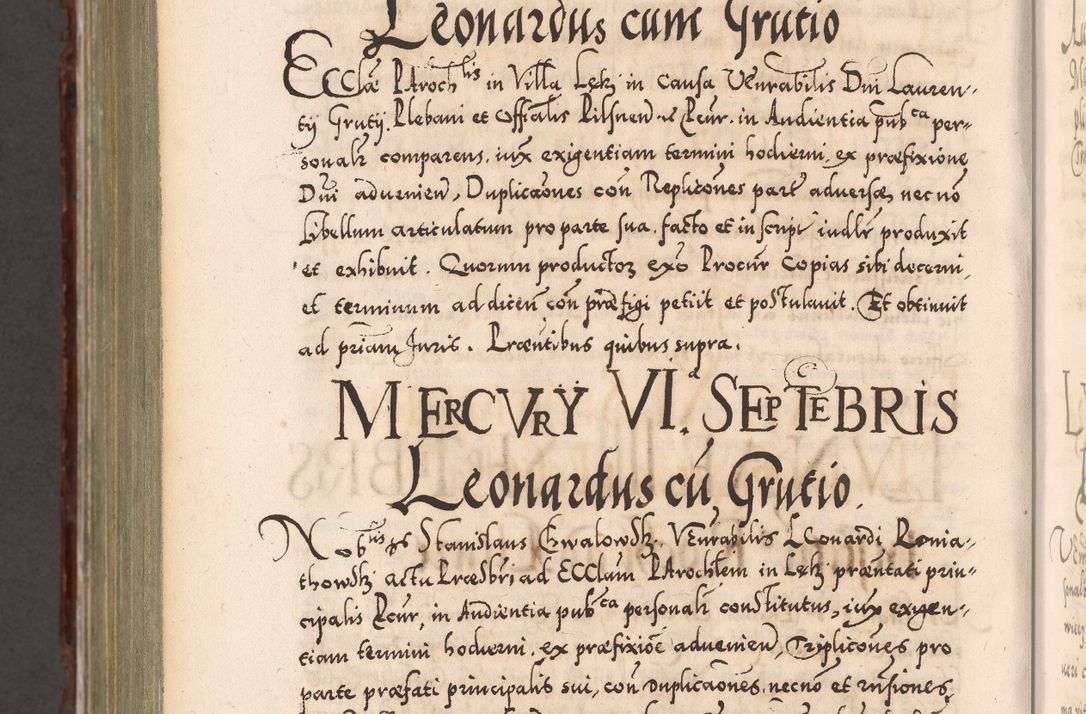 Leonardus cum Grutio
Ecclae Paroch lis in Villa Lęki in causa Venrabilis Dni Lauren-
tij Grutij, Plebani et Officalis Pilsnen Pcur. in Audientia pub ca per-
sonalr comparens, iux exigentiam termini hodierni, ex praefixione
Dni advenien, Duplicaones con Replicones part adversae, nec nō
Libellum articulatum pro parte sua, facto et in script iudlr produxit
et exhibuit. Quorum productoz exō Procur copias sibi decerni,
et terminum ad dicen con praefigi petiit et postulavit. Et obtinuit
ad priam Juris. Praentibus quibus supra.
MERCVRY VI a SEPTEBRIS
Leonardus cū Grutio.
Nob us Stanislaus Gwalowsky, Venrabilis Leonardi Ronia-
thowsky actu Praesbri ad Ecclam Parochlem in Lęki praentati prin-
cipalis Pcur, in Audientia pub ca personalr constitutus, iux exigen-
tiam termini hodierni, ex praefixioē advenien, Triplicones pro
parte praefati principalis sui, con Duplicaones, necnō et rnsiones,